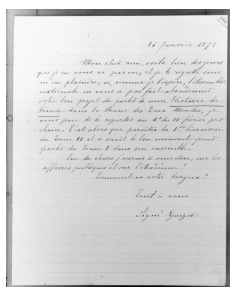 16 Janvier 1872
Mon cher ami, voila bien des jours
que je ne vous ai pas vu, et je le regrette sans
m'en plaindre, si comme je l'espère, l'Assemblée
nationale ne vous a pas fait abandonner
votre bon projet de parler de mon Histoire de
France dans la Revue des Deux Mondes, je
vous prie de le reporter au no du 15 février pro
chain. C'est alors que paraîtra la 1ère livraison
du Tome II et ce serait le bon moment pour
parler du Tome I dans son ensemble.
Que de choses j'aurais à vous dire, sur les
affaires publiques et sur l'Académie!
Comment va votre
Tout à vous
Signé Guizot